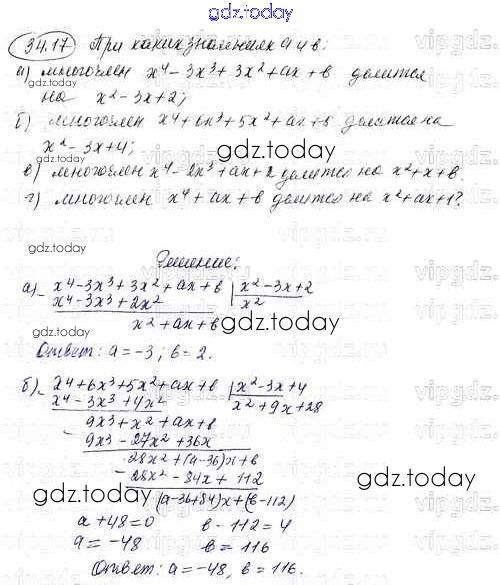 gdz.today
34.17 При каких значениях a и b:
а) многочлен x⁴ − 3x³ + 3x² + ax + b делится
на x² − 3x + 2;
б) многочлен x⁴ + 6x³ + 5x² + ax + b делится на
x² − 3x + 4;
в) многочлен x⁴ − 2x³ + ax + 2 делится на x² + x + b.
г) многочлен x⁴ + ax + b делится на x² + ax + 1?
gdz.today
Решение:
а) − x⁴ − 3x³ + 3x² + ax + b | x² − 3x + 2
x⁴ − 3x³ + 2x² | x²
x² + ax + b
gdz.today
Ответ: a = −3; b = 2.
б) − x⁴ + 6x³ + 5x² + ax + b | x² − 3x + 4
x⁴ − 3x³ + 4x² | x² + 9x + 28
9x³ + x² + ax + b
− 9x³ − 27x² + 36x
28x² + (a − 36)x + b
− 28x² − 84x + 112
gdz.today
(a − 36 + 84)x + (b − 112)
a + 48 = 0 b − 112 = 4
a = −48 b = 116
Ответ: a = −48, b = 116.